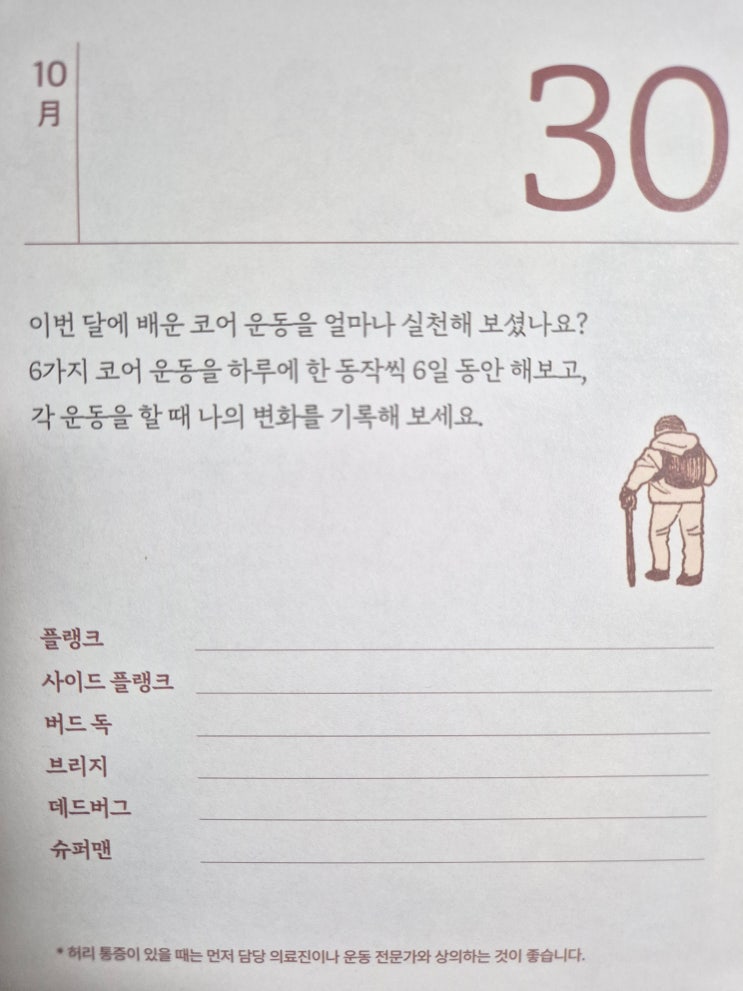 10
月
30
이번 달에 배운 코어 운동을 얼마나 실천해 보셨나요?
6가지 코어 운동을 하루에 한 동작씩 6일 동안 해보고,
각 운동을 할 때 나의 변화를 기록해 보세요.
플랭크
사이드 플랭크
버드 독
브리지
데드버그
슈퍼맨
* 허리 통증이 있을 때는 먼저 담당 의료진이나 운동 전문가와 상의하는 것이 좋습니다.